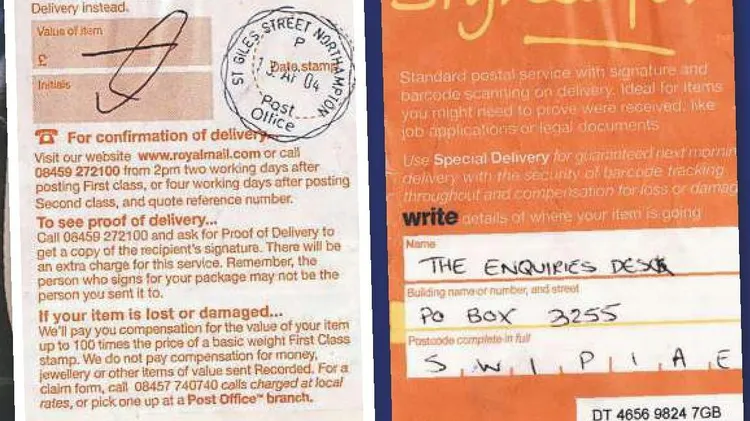 Delivery instead.
Value of item
£
Initials
ST GILES STREET NORTHAMPTON
P
Date stamp
04
Post
Office
For confirmation of delivery...
Visit our website www.royalmail.com or call
08459 272100 from 2pm two working days after
posting First class, or four working days after posting
Second class, and quote reference number.
To see proof of delivery...
Call 08459 272100 and ask for Proof of Delivery to
get a copy of the recipient's signature. There will be
an extra charge for this service. Remember, the
person who signs for your package may not be the
person you sent it to.
If your item is lost or damaged...
We'll pay you compensation for the value of your item
up to 100 times the price of a basic weight First Class
stamp. We do not pay compensation for money,
jewellery or other items of value sent Recorded. For a
claim form, call 08457 740740 calls charged at local
rates, or pick one up at a Post Office™ branch.
Standard postal service with signature and
barcode scanning on delivery. Ideal for items
you might need to prove were received, like
job applications or legal documents
Use Special Delivery for guaranteed next mornin
delivery with the security of barcode tracking
throughout and compensation for loss or damag
write details of where your item is going
Name
THE ENQUIRIES DESK
Building name or number, and street
PO BOX 3255
Postcode complete in full
S W 1 P 1 A E
DT 4656 9824 7GB